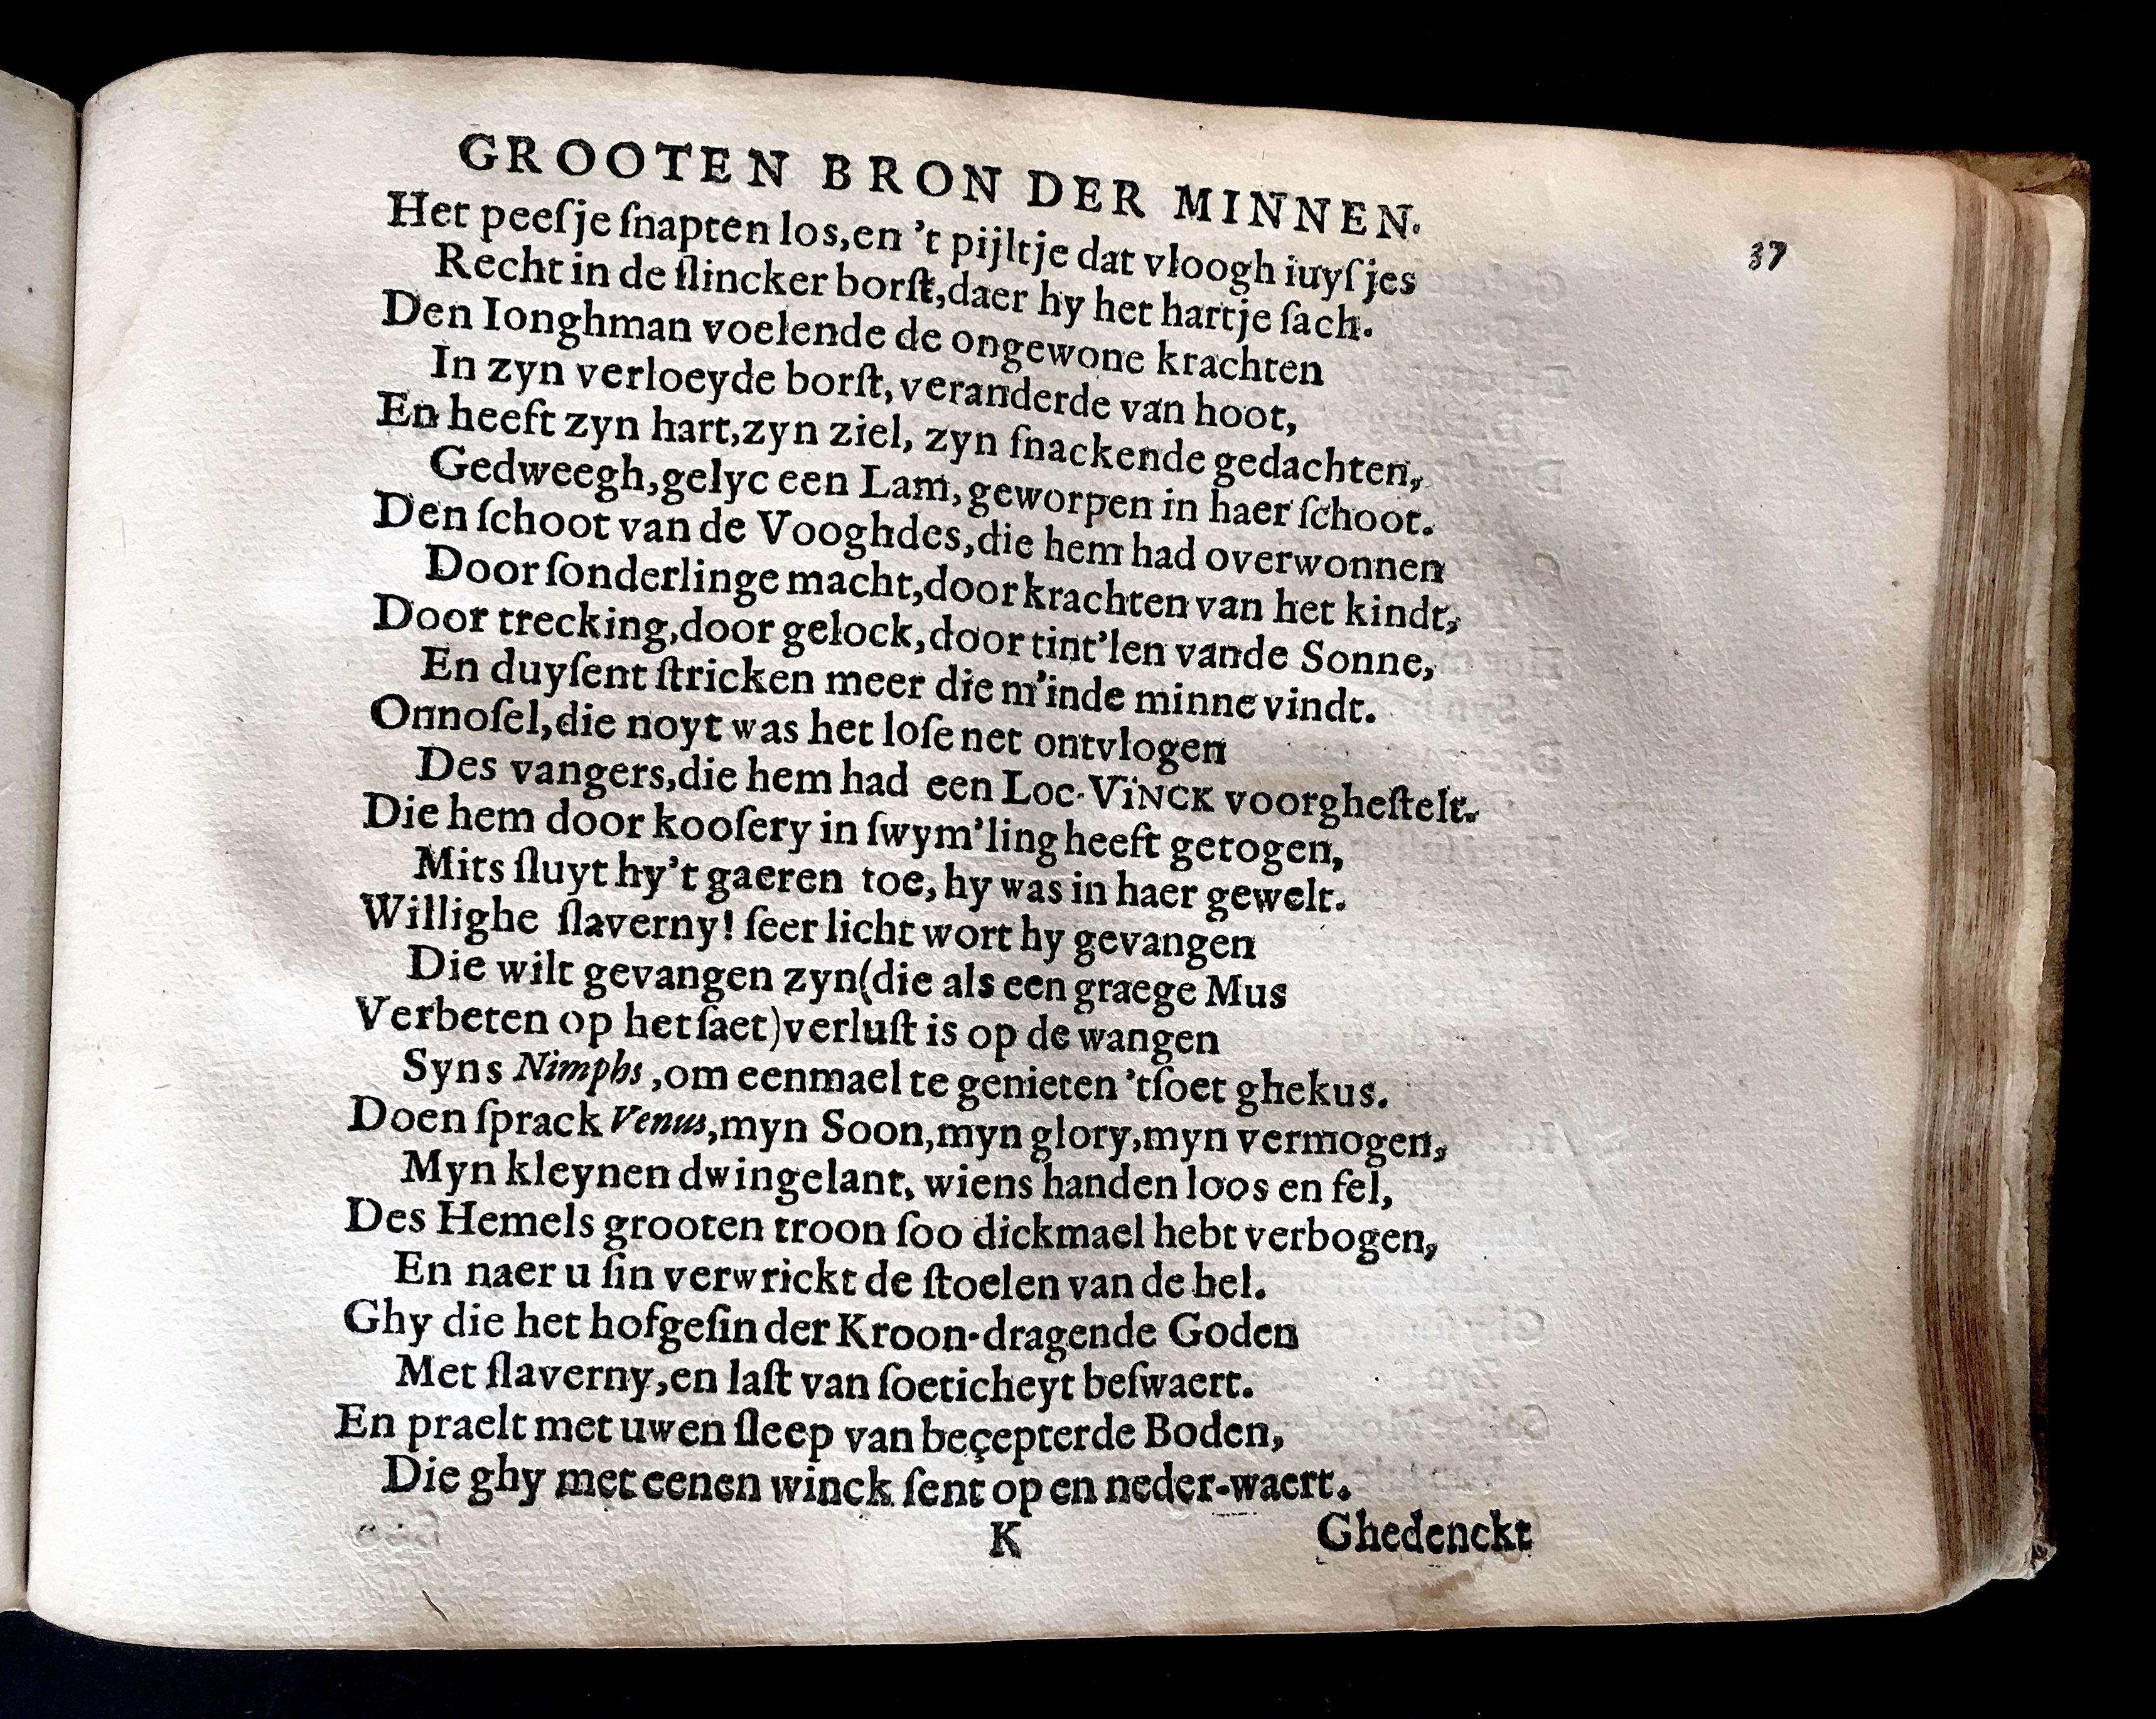 GROOTEN BRON DER MINNEN.
37
Het peeſje ſnapten los,en 't pijltje dat vloogh iuyſjes
Recht in de ſlincker borſt,daer hy het hartje ſach.
Den Ionghman voelende de ongewone krachten
In zyn verloeyde borſt, veranderde van hoot,
En heeft zyn hart,zyn ziel, zyn ſnackende gedachten,
Gedweegh,gelyc een Lam, geworpen in haer ſchoot.
Den ſchoot van de Vooghdes,die hem had overwonnen
Door ſonderlinge macht,door krachten van het kindt,
Door trecking,door gelock,door tint'len vande Sonne,
En duyſent ſtricken meer die m'inde minne vindt.
Onnoſel,die noyt was het loſe net ontvlogen
Des vangers,die hem had een Loc-VINCK voorgheſtelt.
Die hem door kooſery in ſwym'ling heeft getogen,
Mits ſluyt hy't gaeren toe, hy was in haer gewelt.
Willighe ſlaverny! ſeer licht wort hy gevangen
Die wilt gevangen zyn(die als een graege Mus
Verbeten op het ſaet)verluſt is op de wangen
Syns Nimphs,om eenmael te genieten 'tſoet ghekus.
Doen ſprack Venus,myn Soon,myn glory,myn vermogen,
Myn kleynen dwingelant, wiens handen loos en fel,
Des Hemels grooten troon ſoo dickmael hebt verbogen,
En naer u ſin verwrickt de ſtoelen van de hel.
Ghy die het hofgeſin der Kroon-dragende Goden
Met ſlaverny,en laſt van ſoeticheyt beſwaert.
En praelt met uwen ſleep van beçepterde Boden,
Die ghy met eenen winck ſent op en neder-waert.
K
Ghedenckt